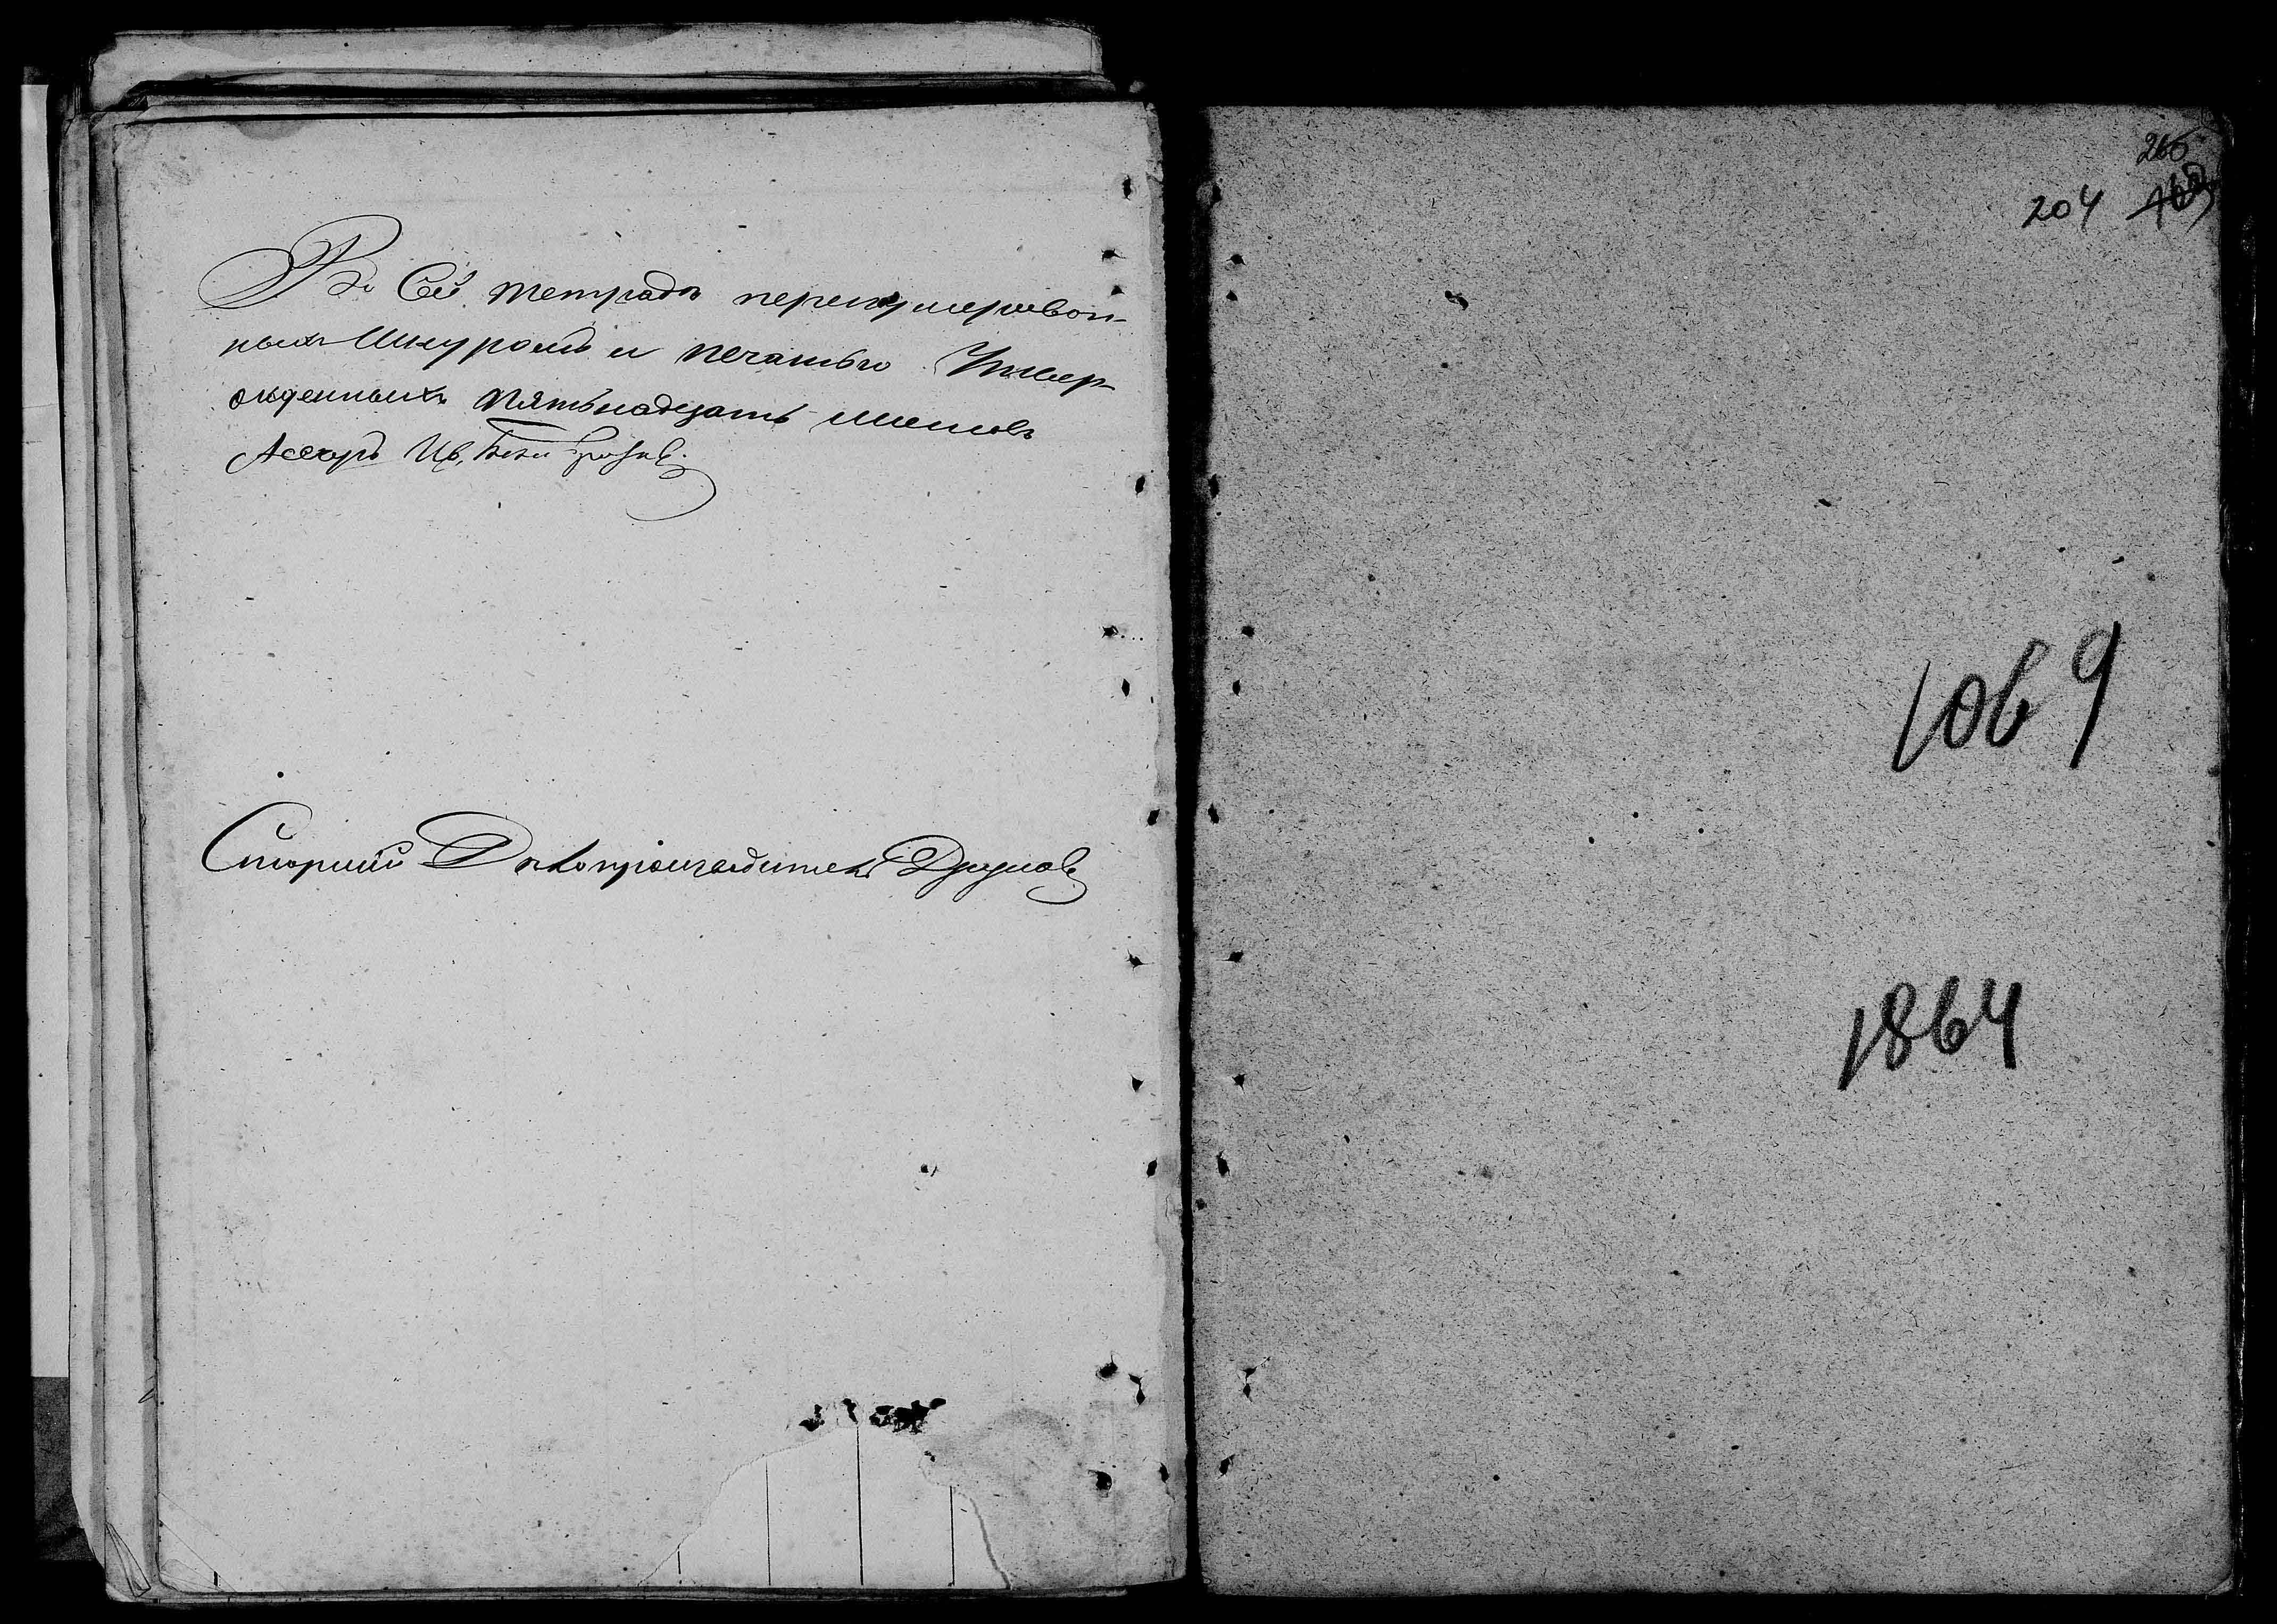 Въ Сей тетрадѣ перенумерован-
ныхъ Шнуромъ и печатью Утвер-
жденныхъ пятьнадцать листовъ
Старший Дѣлопроизводитель
265
204
1069
1864